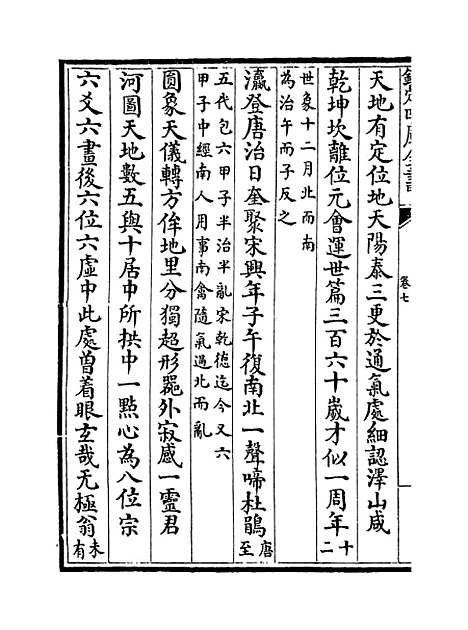 欽定四庫全書
卷七
天地有定位地天陽泰三更於通氣處細認澤山咸
乾坤坎離位元會運世篇三百六十歲才似一周年十二
世象十二月北而南
為治午而子反之
瀛登唐治日奎聚宋興年子午復南北一聲啼杜鵑唐至
五代包六甲子半治半亂宋乾德迄今又六
甲子中經南人用事南禽隨氣過北而亂
圓象天儀轉方侔地里分獨超形器外寂感一靈君
河圖天地數五與十居中所拱中一點心為八位宗
六爻六畫後六位六虛中此處曾着眼玄哉无極翁未有